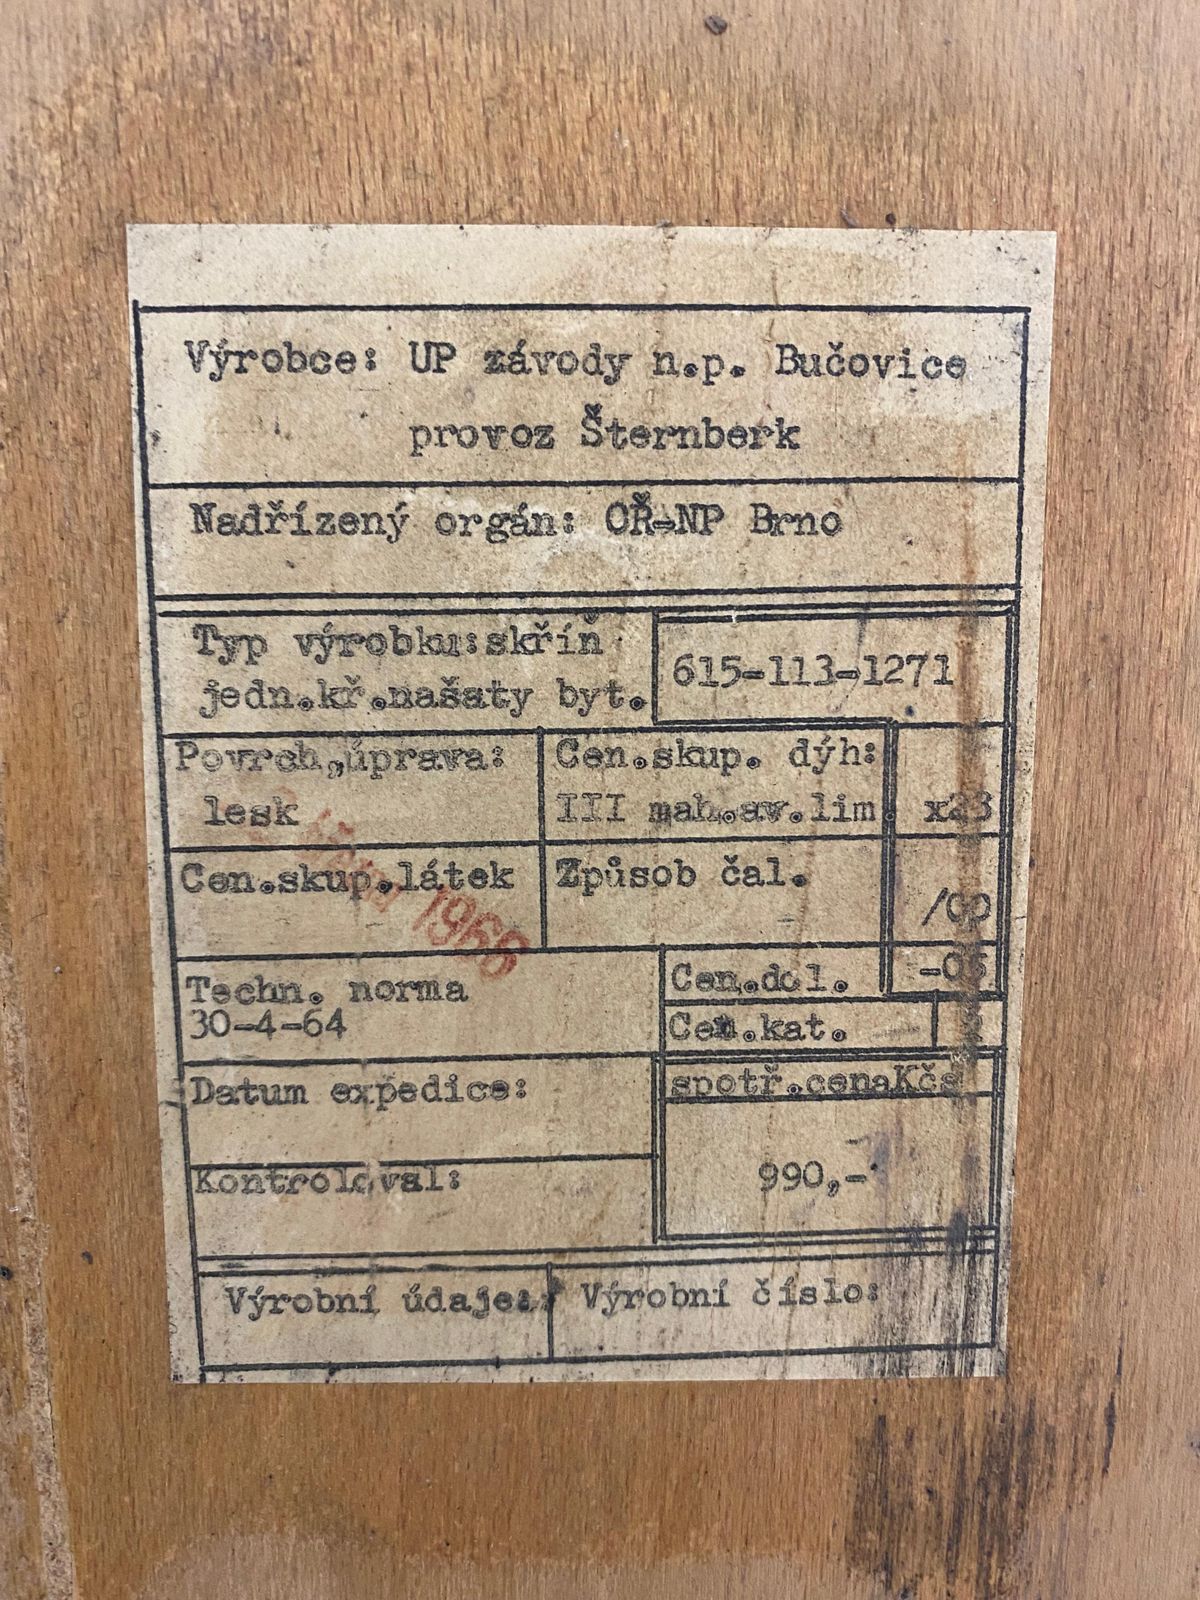 Výrobce: UP závody n.p. Bučovice
provoz Šternberk
Nadřízený orgán: OŘ-NP Brno
Typ výrobku:skříň
jedn.kř.našaty byt.
615-113-1271
Povrch,úprava:
lesk
Cen.skup. dýh:
III mah.av.lim.
x23
Cen.skup.látek
Způsob čal.
/00
1968
Techn. norma
30-4-64
Cen.dol.
Cen.kat.
Datum expedice:
spotř.cenaKčs
990,-
Kontroloval:
Výrobní údaje:
Výrobní číslo: